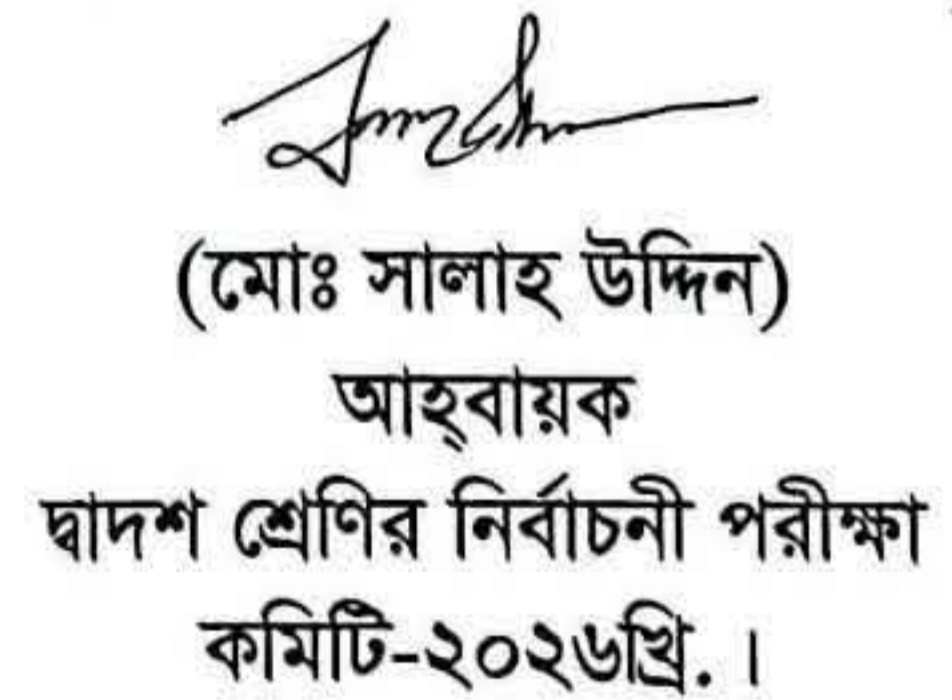 (মোঃ সালাহ উদ্দিন)
আহ্‌বায়ক
দ্বাদশ শ্রেণির নির্বাচনী পরীক্ষা
কমিটি-২০২৬খ্রি. ।